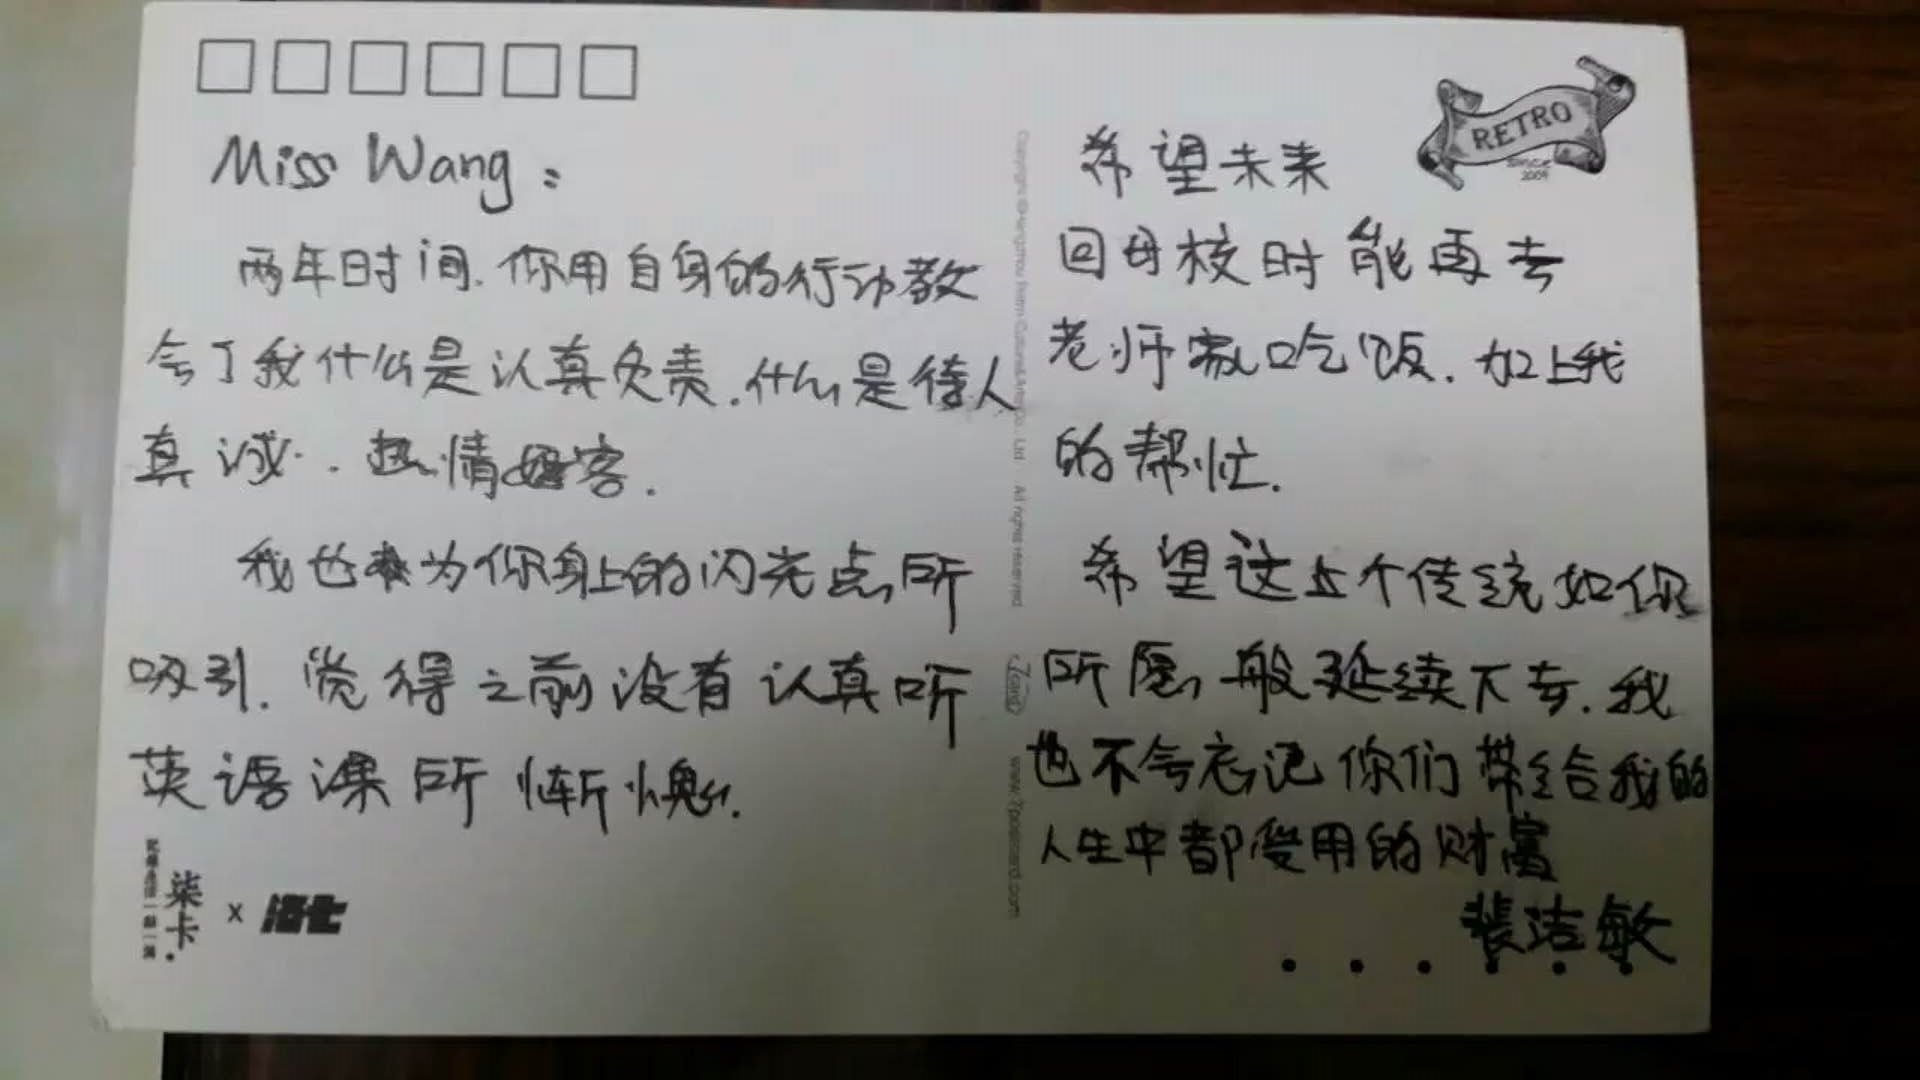 Miss Wang：
两年时间.你用自身的行动教
会了我什么是认真负责.什么是待人
真诚..热情好客.
我也为你身上的闪光点所
吸引.觉得之前没有认真听
英语课所惭愧.
柒卡.
x
RETRO
Since
2009
希望未来
回母校时能再去
老师家吃饭.加上我
的帮忙.
希望这个传统如你
所愿般延续下去.我
也不会忘记你们带给我的
人生中都受用的财富
裴洁敏
All rights reserved
www.7postcard.com